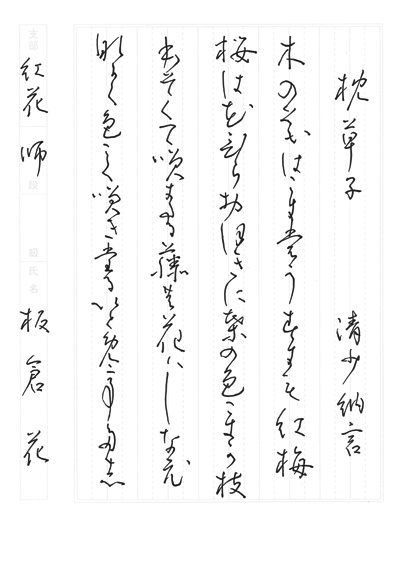 枕草子　清少納言
木の花はこきもうすきも紅梅
桜は花ひらおほきに葉の色こきか枝
ほそくて咲きたる藤の花はしなひ
那かく色こく咲きたるいとめてたし
支部 紅花 師 段 級 氏名 板倉 花